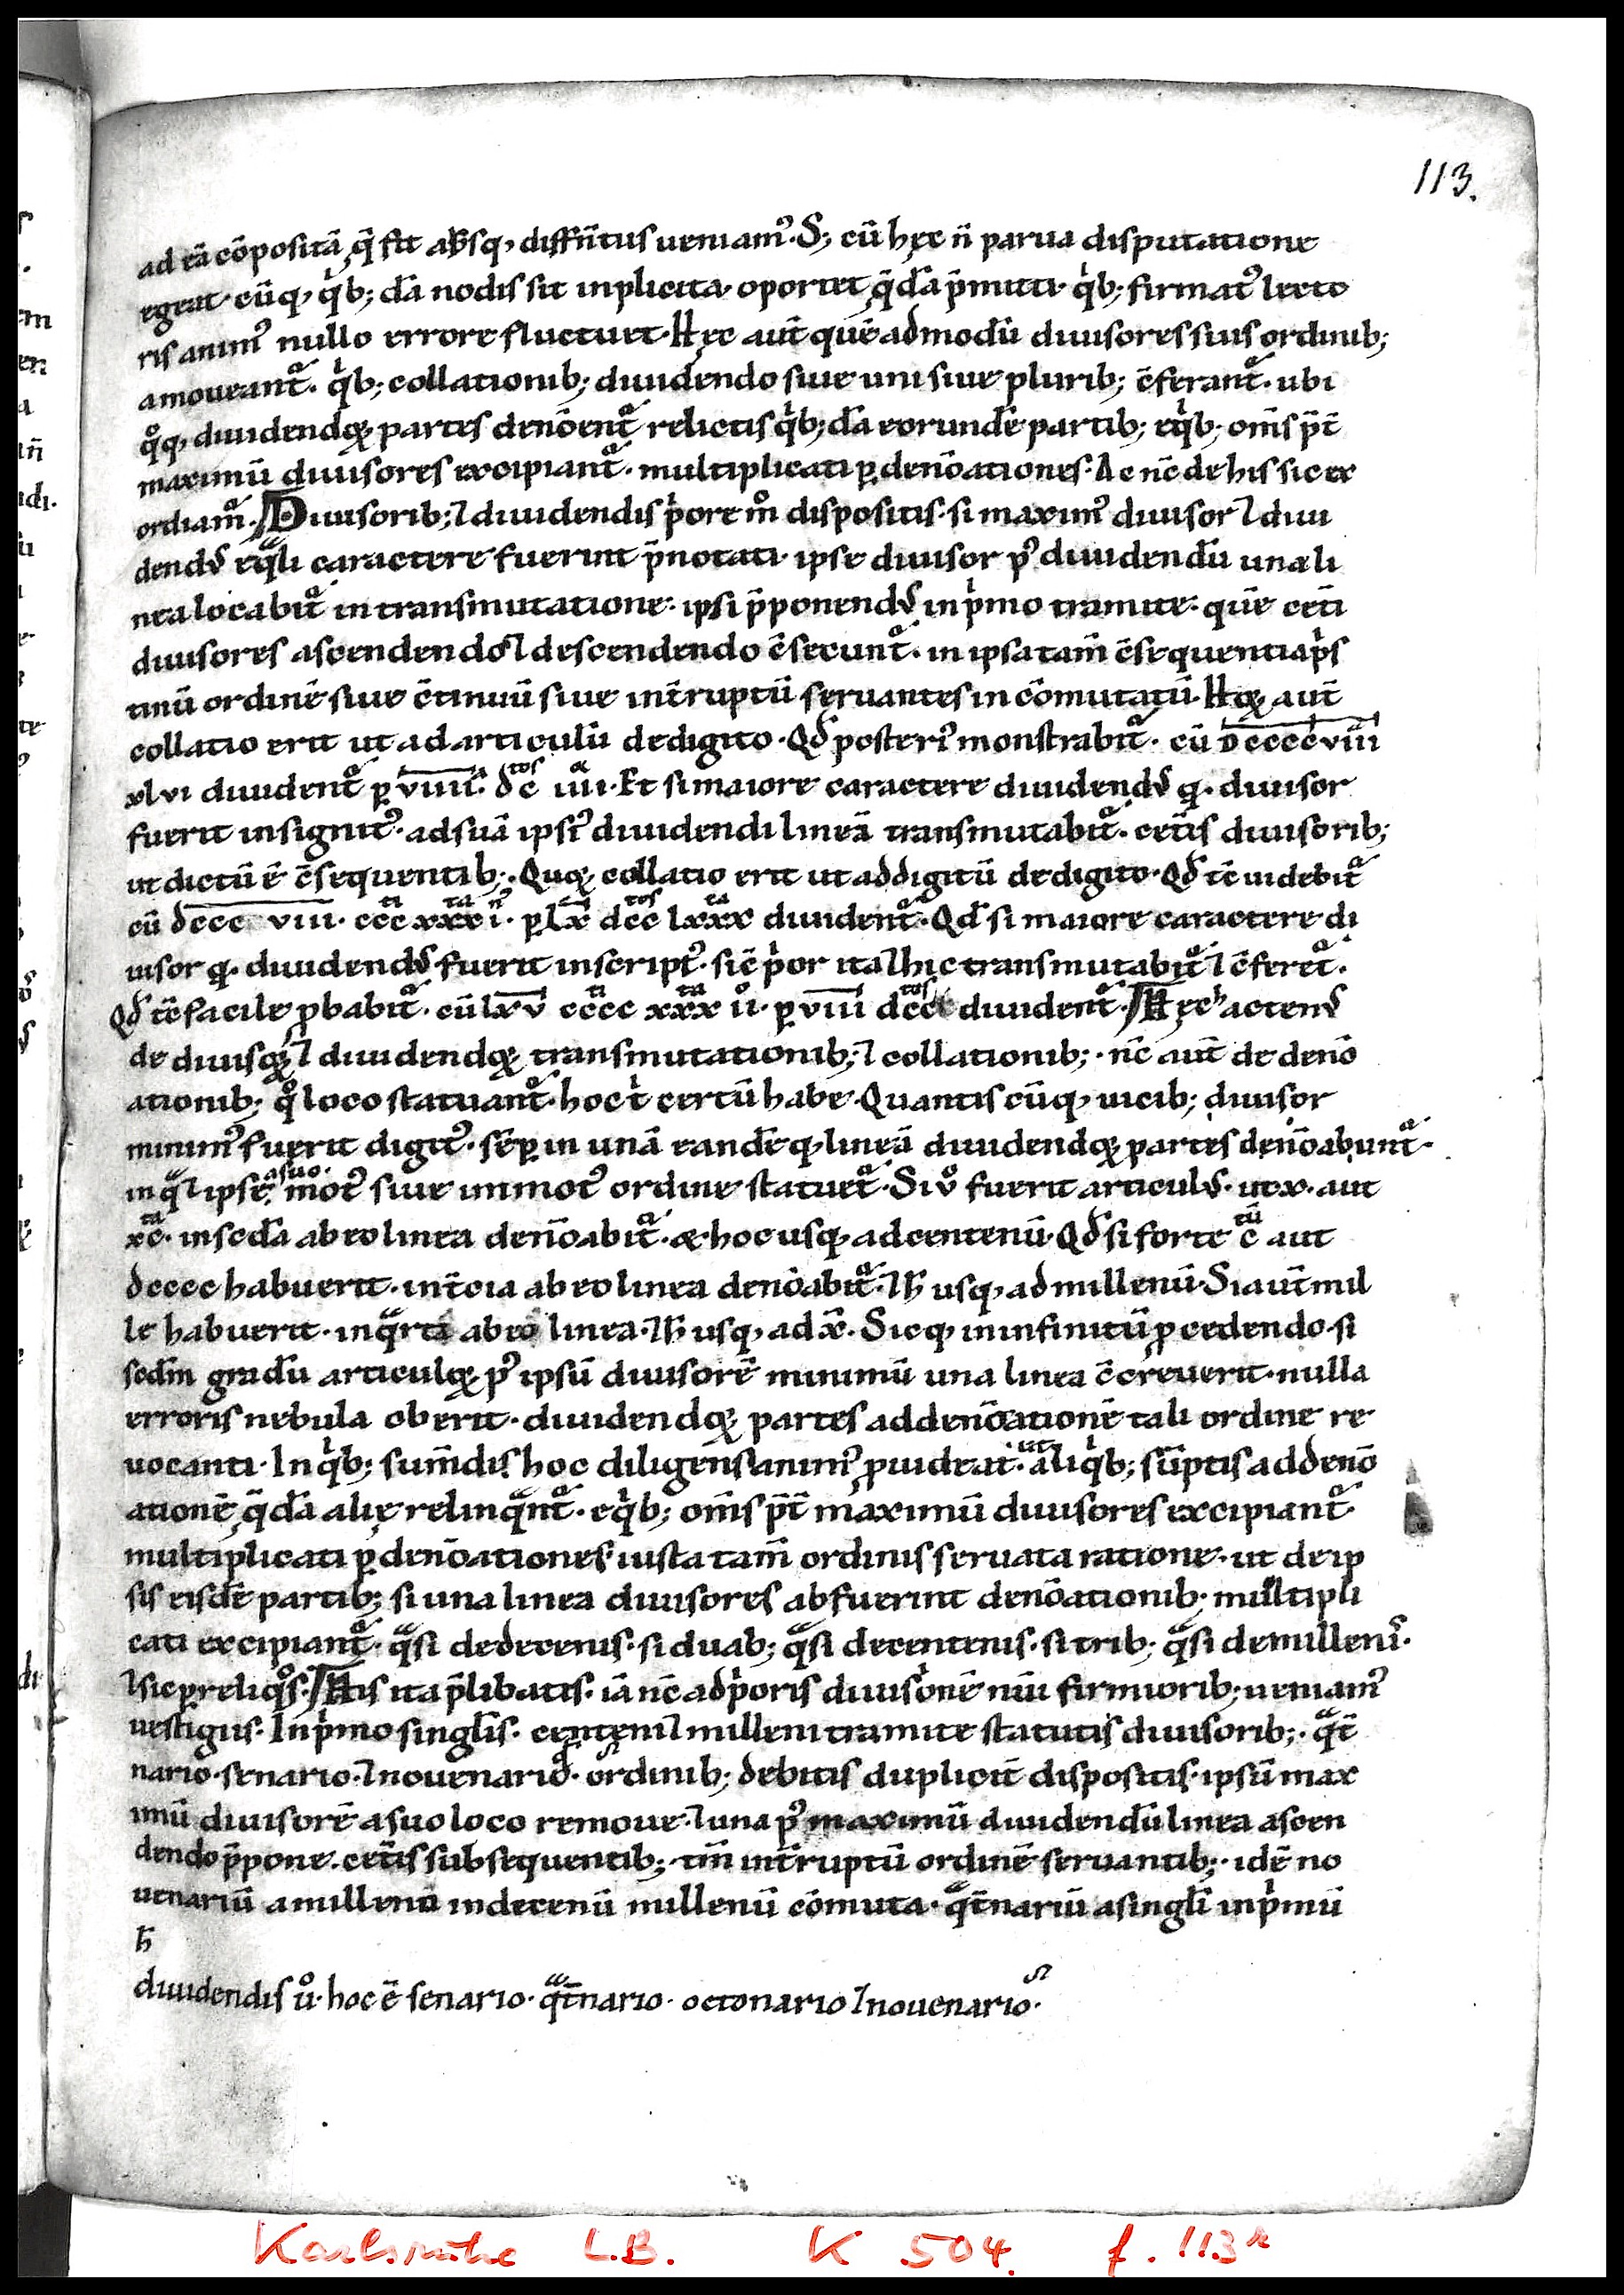 113.
ad eā cōpositā q̄ fit absq, diffn̄tus ueniam᾽. S; cū hęc n̄ parua disputatione
egeat cūq, qͥb; dā nodis sit inplicita oportet qͣdā p̄mitti qͥb; firmat᾽ lecto
ris anim᾽ nullo errore fluctuet. Hęc aut̄ quē admodū diuisores suis ordinib;
amoueant᾽. qͥb; collationib; diuidendo siue uni siue plurib; c̄ferant᾽. ubi
qͦq, diuidendoꝝ partes denōent᾽ relictis qͥb; dā eorundē partib; eqͥb; om̄s p̄t
maximū diuisores excipiant᾽. multiplicati ꝑ denōationes. Ac nc̄ de his sic ex
ordiam᾽. Diuisorib; ⁊ diuidendis pͥore mͦ dispositis. si maxim᾽ diuisor ⁊ diui
dend᾽ eqͣli caractere fuerint p̄notati. ipse diuisor p᾽ diuidendū una li
nea locabit᾽ in transmutatione. ipsi p̄ponend᾽ in pͥmo tramite. quē cet̄i
diuisores ascendendo ⁊ descendendo c̄secunt᾽. in ipsa tam̄ c̄sequentia pͥs
tinū ordinē siue c̄tinuū siue int̄ruptū seruantes in cōmutatū. Hoꝝ aut̄
collatio erit ut ad articulū de digito. Qd᾽ posteri᾽ monstrabit᾽. cū dccccviiii
xlvi diuident᾽ ꝑ viiii. dc̄ͭͦˢ iiii. Et si maiore caractere diuidend᾽ q̄. diuisor
fuerit insignit᾽. ad suā ipsi᾽ diuidendi lineā transmutabit᾽. cet̄is diuisorib;
ut dictū ē c̄sequentib;. Quoꝝ collatio erit ut ad digitū de digito. Qd᾽ tc̄ uidebit᾽
cū dccc viii. ccc xxx i. ꝑ lx dcc lxxx diuident᾽. Qd̄ si maiore caractere di
uisor q̄. diuidend᾽ fuerit inscript᾽. sic̄ pͥor ita ⁊ hic transmutabit᾽ ⁊ c̄feret᾽.
Qd᾽ tc̄ facile ꝓbabit᾽. cū lxv cccc xxx ii. ꝑ viii dcc diuident᾽. Hęc actenus
de diuisoꝝ ⁊ diuidendoꝝ transmutationib; ⁊ collationib;. nc̄ aut̄ de denō
ationib; qͦ loco statuant᾽. hoc tͥ certū habe. Quantis cūq, uicib; diuisor
minim᾽ fuerit digit᾽. sēꝑ in unā eandēq, lineā diuidendoꝝ partes denōabunt᾽.
in qͣ ⁊ ipse asuo. mot᾽ siue inmot᾽ ordine statuet᾽. Si uͦ fuerit articul᾽. ut x. aut
xc. in scd̄a ab eo linea denōabit᾽. & hoc usq, ad centenū. Qd᾽ si forte c̄ aut
dcccc habuerit. in t̄cia ab eo linea denōabit᾽. ⁊ h̄ usq, ad millenū. Si aut̄ mil
le habuerit. in qͣrta ab eo linea. ⁊ h̄ usq, ad x̄. Sicq, in infinitū ꝓcedendo. si
scd̄m gradū articuloꝝ p᾽ ipsū diuisorē minimū una linea c̄creuerit. nulla
erroris nebula oberit. diuidendoꝝ partes ad denōationē tali ordine re
uocanti. In qͥb; sum̄dis hoc diligens anim᾽ ꝓuideat. ut aliqͥb; sūptis ad denō
ationē qͣdā alię relinqͣnt᾽. eqͥb; om̄s p̄t maximū diuisores excipiant᾽
multiplicati ꝑ denōationes iusta tam̄ ordinis seruata ratione. ut de ip
sis eisdē partib; si una linea diuisores abfuerint denōationib; multipli
cati excipiant᾽. qͣsi de decenis. si duab; qͣsi de centenis. si trib; qͣsi de millenis.
⁊ sic ꝑ reliqͦs. His ita p̄libatis. iā nc̄ ad pͥoris diuisͥonē nūi firmiorib; ueniam᾽
uestigiis. In pͥmo singlis. centeni ⁊ milleni tramite statutis diuisorib;. qͣt̄
nario. senario. ⁊ nouenario. ordinib; debitis duplicit̄ dispositis. ipsū max
imū diuisorē a suo loco remoue. ⁊ una p᾽ maximū diuidendū linea ascen
dendo p̄pone. cet̄is subsequentib;. tm̄ int̄ruptū ordinē seruantib;. idē no
uenariū a millenū in decenū millenū cōmuta. qͣt̄nariū a singlī in pͥmū
h̄
diuidendis uͦ. hoc ē senario. qͣt̄nario. octonario ⁊ nouenario.
Karlsruhe L.B. K 504. f. 113ʳ